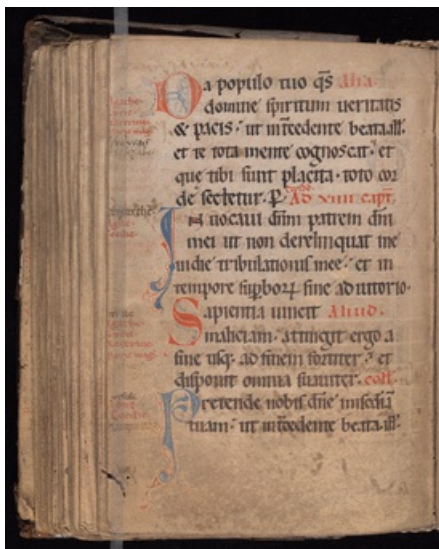 Da populo tuo qs Alia.
domine spiritum ueritatis
& pacis. ut intcedente beata ill.
et te tota mente cognoscat. et
que tibi sunt placita. toto cor
de sectetur. P. Ad viiii capit.
Inuocaui dnm patrem dni
mei ut non derelinquat me
in die tribulationis mee. et in
tempore supborꝝ sine adiutorio.
Sapientia uincit Aliud.
maliciam. attingit ergo a
fine usq; ad finem fortiter. et
disponit omnia suauiter. coll.
Pretende nobis dne miscdiā
tuam. ut intcedente beata ill.